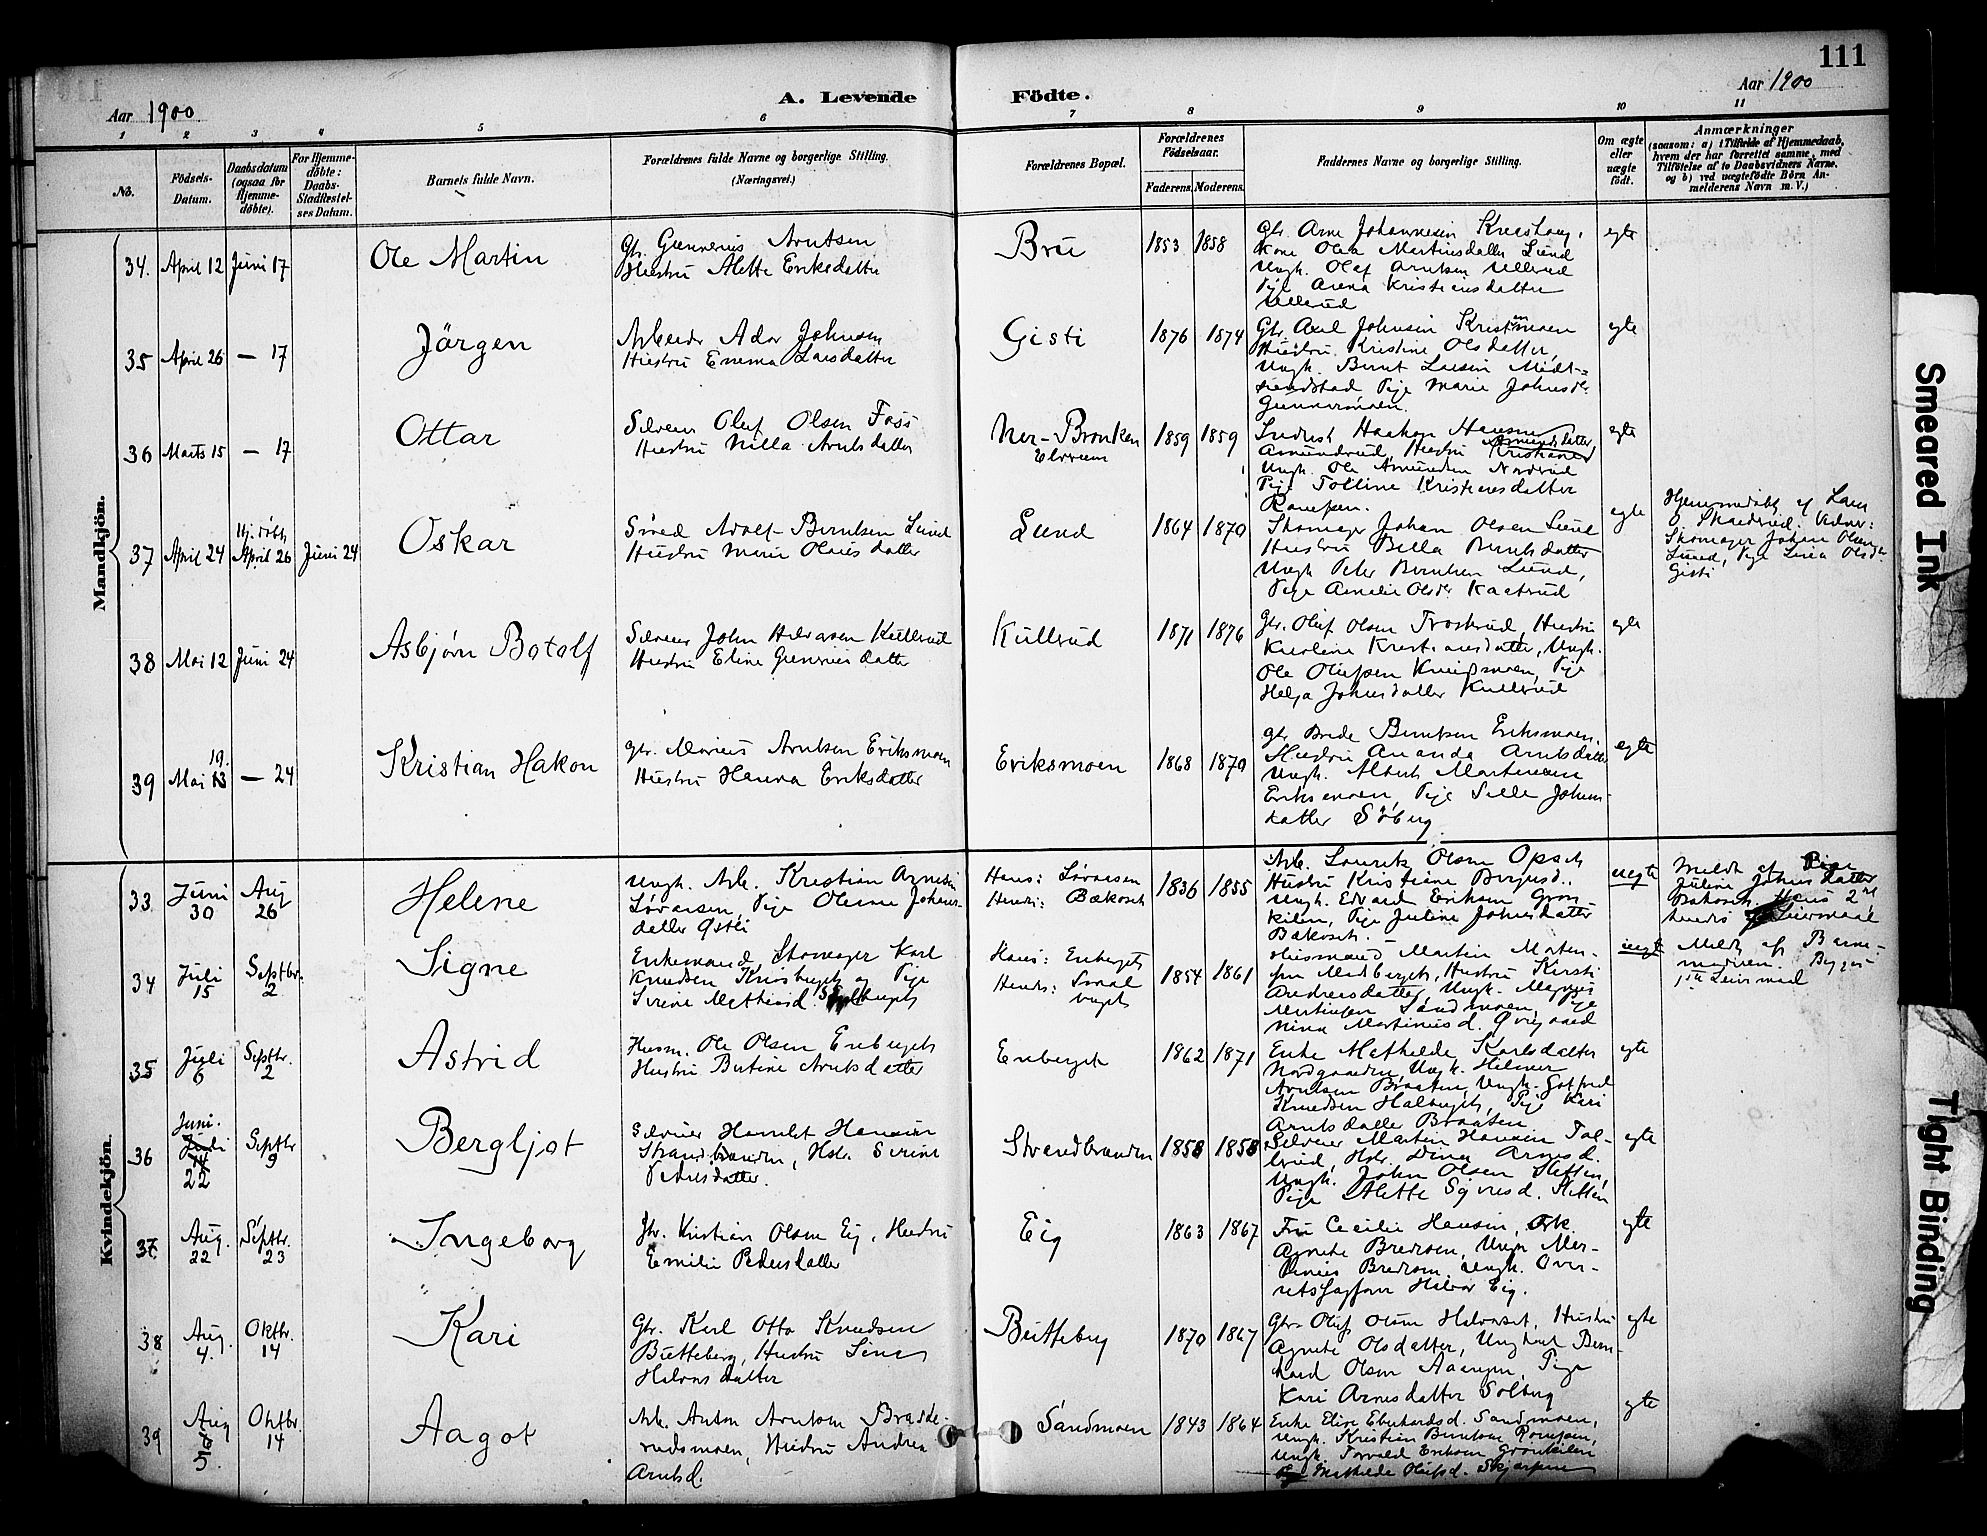 111
Aar 1900
A. Levende Födte.
Aar 1900
1 2 3 4 5 6 7 8 9 10 11
No.
Födsels-Datum.
Daabsdatum (ogsaa for Hjemme-döbte).
For Hjemme-döbte: Daabs-Stadfæstel-ses Datum.
Barnets fulde Navn.
Forældrenes fulde Navne og borgerlige Stilling.
(Næringsvei.)
Forældrenes Bopæl.
Forældrenes Födselsaar.
Faderens.
Moderens.
Faddernes Navne og borgerlige Stilling.
Om ægte eller uægte födt.
Anmærkninger
(saasom: a) i Tilfælde af Hjemmedaab, hvem der har forrettet samme, med Tilföielse af to Daabsvidners Navne, og b) ved uægtefödte Börn Anmelderens Navn m. V.)
Mandkjön.
34. April 12 Juni 17 Ole Martin
Gbr. Gunnerius Arntsen
Hustru Alette Eriksdatter
Bru 1853 1858
Gbr. Arne Johannesen
Kone Olea Martinsdatter Lund
Ungk. Olaf Arntsen Ullerud
Pige Arena Kristiansdatter
Ullerud
egte
35 April 26 — 17 Jörgen
Arbeider Ador Johnsen
Hustru Emma Larsdatter
Gisti 1876 1874
Gbr. Axel Johnsen
Hustru Kristine Olsdatter,
Ungk. Bernt Larsen Midt-
Pige Marie Johnsdr.
Gunnersmoen.
egte
36 Marts 15 — 17 Ottar
Oluf Olsen Foss
Hustru Milla Arntsdatter
Ner-Bronken
Elverum
1859 1859
Haakon Hansen
Amundrud, Hustru Kristiane Amundsdatter,
Ungk. Ole Amundsen Nordrud
Pige Tolline Kristiansdatter
egte
37 April 24 Hj. döbt April 26 Juni 24 Oskar
Smed Adolf Berntsen Lund
Hustru Marie Olausdatter
Lund 1864 1870
Skomager Johan Olsen Lund
Hustru Berntsdatter
Ungk Peter Berntsen Lund,
Pige Amalie Olsdr Kaatrud
egte
Hjemmedöbt af Lars
O. Skaderud. Vidner:
Skomager Johan Olsen
Lund, Pige Lina Olsdr.
Gisti
38 Mai 12 Juni 24 Asbjørn Botolf
John Halvorsen Kullerud
Hustru Eline Gunneriusdatter
Kullrud 1871 1876
Gbr. Oluf Olsen Troskrud, Hustru
Karoline Kristiansdatter, Ungk.
Ole Olufsen Kveismoen, Pige
Helga Johnsdatter Kullerud
egte
39 Mai 19. — 24 Kristian Hakon
Gbr. Marius Arntsen Eriksmoen
Hustru Hanna Eriksdatter
Eriksmoen 1868 1870
Gbr Brede Berntsen Eriksmoen.
Hustru Ananda Arntsdatter
Ungk. Albert Martinsen
Eriksmoen, Pige Sella Johns-
datter Söberg
egte
Kvindekjön.
33 Juni 30 Aug 26 Helene
Ungk. Arb. Kristian Arnesen
Sørarsen, Pige Oline Johans-
datter Østli
Hans: Sørarsen
Hendes: Bækoset
1836 1855
Arb. Lauritz Olsen Opset
Hustru Kristiane
Ungk. Edvard Eriksen Gron-
kilen, Pige Juline Johnsdatter
Bækoset.
uegte
Meldt af Pige
Juline Johnsdatter
Bækoset. Hans 2det
hendes Leiermaal
34 Juli 15 Septbr. 2 Signe
Enkemand Skomager Karl
Knudsen og Pige
Serine Mathiasd.
Hans: Enberget
Hendes:
1854 1861
Husmand Martin Morten-
sen Madberget, Hustru Kirsti
Andreasdatter, Ungk. Magnus
Martinsen Sandmoen, Pige
Nina Martiniusd. Øvergaard
uegte
Meldt af Barne-
moderen. Begges
1ste Leiermaal
35 Juli 6 Septbr. 2 Astrid
Husm. Ole Olsen Enberget
Hustru Betine Arntsdatter
Enberget 1862 1871
Enke Mathilde Karlsdatter
Nordgaarden, Ungk. Hilmer
Arntsen Braaten, Ungk. Gotfred
Knudsen Halberget, Pige Kari
Arntsdatter Braaten
egte
36 Juni. 22 Septbr 9 Bergljot
Selveier Hansen
Strandbraaden, Hstr. Serine
Petersdatter.
Strandbraaden 1858 1858
Selveier Martin Hansen Tol-
lerud, Hstr. Dina Arnesd.
Ungk. Johan Olsen Sletten,
Pige Alette Syversd. Sletten
egte
37 Aug. 22 Septbr. 23 Ingeborg
Gbr. Kristian Olsen Eig, Hustru
Emilie Pedersdatter
Eig 1863 1867
Fru Cecilie Hansen, Frk.
Agnete Bredesen, Ungk Mar-
Bredesen, Ungk. Over-
retssagfører Halvor Eig.
egte
38 Aug. 4. Oktbr. 14 Kari
Gbr. Karl Otto Knudsen
Butteberg, Hustru Lina
Halvorsdatter
Butteberg 1870 1867
Gbr. Oluf Olsen Halvorset, Hustru
Agnete Olsdatter, Ungkarl Bern-
hard Olsen Aasengen, Pige
Kari Arnesdatter Solberg
egte
39 Aug 5 Oktbr. 14 Aagot
Arb. Anton Arntsen Bradde-
rudsmoen, Hustru Andrea
Arntsd.
Sandmoen 1843 1864
Enke Elise Eberhardsd. Sandmoen,
Ungk. Kristian Berntsen
Ungk. Torvald Eriksen Gronkilen
Pige Mathilde Olufsd.
egte
Smeared Ink
Tight Binding